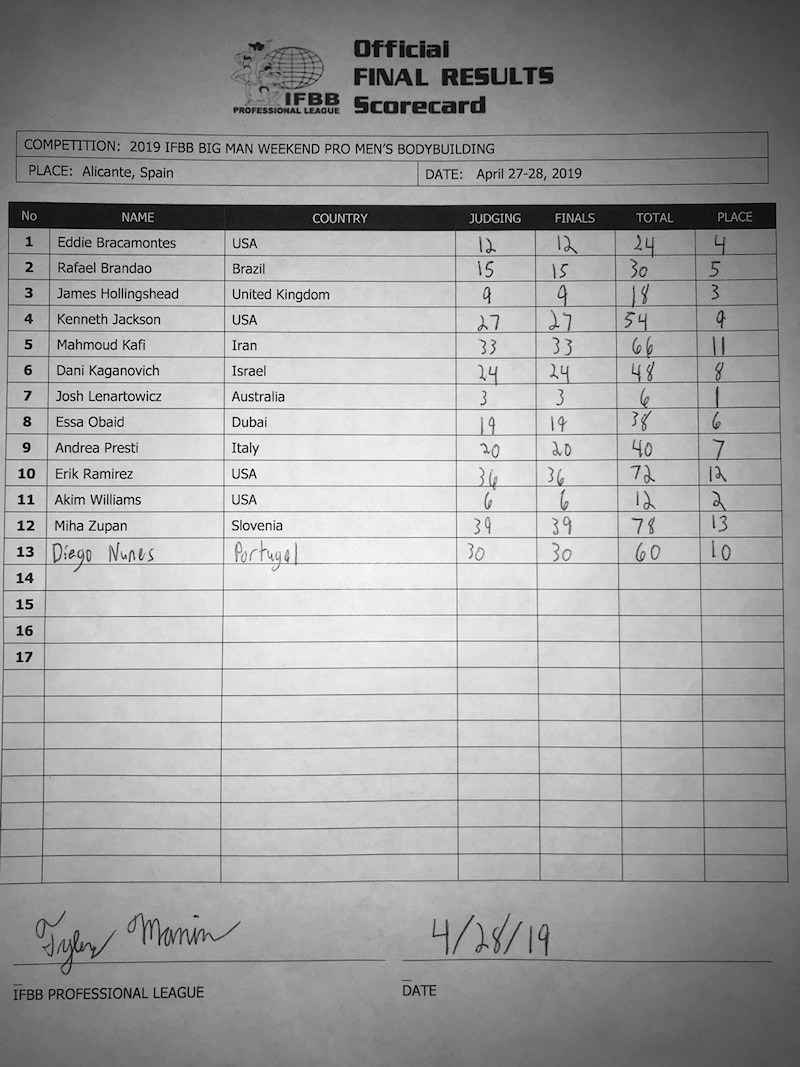 Official
FINAL RESULTS
Scorecard
IFBB
PROFESSIONAL LEAGUE
COMPETITION: 2019 IFBB BIG MAN WEEKEND PRO MEN'S BODYBUILDING
PLACE: Alicante, Spain DATE: April 27-28, 2019
No NAME COUNTRY JUDGING FINALS TOTAL PLACE
1 Eddie Bracamontes USA 12 12 24 4
2 Rafael Brandao Brazil 15 15 30 5
3 James Hollingshead United Kingdom 9 9 18 3
4 Kenneth Jackson USA 27 27 54 9
5 Mahmoud Kafi Iran 33 33 66 11
6 Dani Kaganovich Israel 24 24 48 8
7 Josh Lenartowicz Australia 3 3 6 1
8 Essa Obaid Dubai 19 19 38 6
9 Andrea Presti Italy 20 20 40 7
10 Erik Ramirez USA 36 36 72 12
11 Akim Williams USA 6 6 12 2
12 Miha Zupan Slovenia 39 39 78 13
13 Diego Nunes Portugal 30 30 60 10
14
15
16
17
Tyler Manin 4/28/19
IFBB PROFESSIONAL LEAGUE DATE